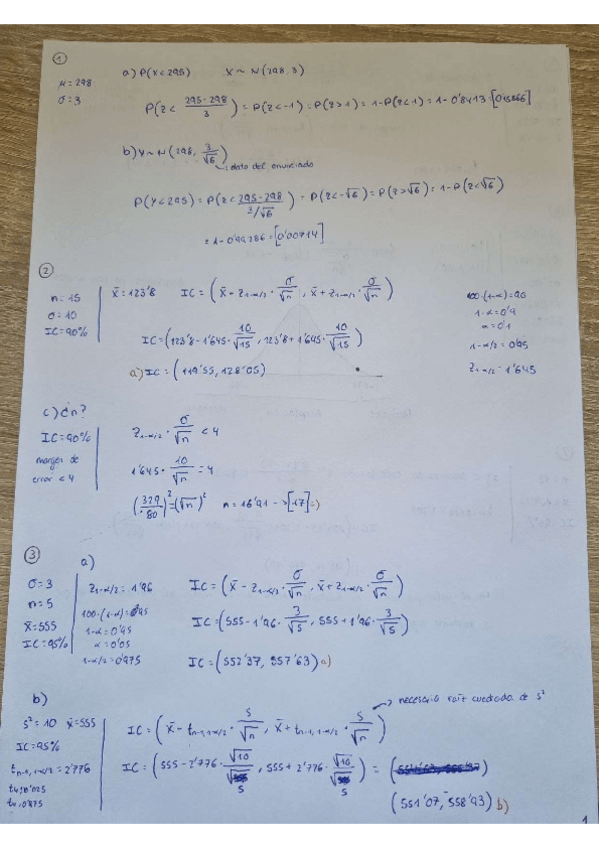 1
μ = 298
σ = 3
a) P(X<295) X ~ N(298, 3)
P(Z < 295-298/3) = P(Z<-1) = P(Z>1) = 1-P(Z<1) = 1-0'8413 = [0'15866]
b) Y ~ N(298, 3/√6)
dato del enunciado
P(Y<295) = P(Z < 295-298/3/√6) = P(Z<-√6) = P(Z>√6) = 1-P(Z<√6)
= 1-0'99286 = [0'00714]
2
n = 15
σ = 10
IC = 90%
x̄ = 123'8 IC = (x̄ - z1-α/2 · σ/√n , x̄ + z1-α/2 · σ/√n)
IC = (123'8 - 1'645 · 10/√15 , 123'8 + 1'645 · 10/√15)
a) IC = (119'55, 128'05)
100·(1-α) = 90
1-α = 0'9
α = 0'1
1-α/2 = 0'95
z1-α/2 = 1'645
c) ¿n?
IC = 90%
margen de
error < 4
z1-α/2 · σ/√n < 4
1'645 · 10/√n = 4
(329/80)² = (√n)² n = 16'91 -> [17]
3
a)
σ = 3
n = 5
x̄ = 555
IC = 95%
z1-α/2 = 1'96
100·(1-α) = 95
1-α = 0'95
α = 0'05
1-α/2 = 0'975
IC = (x̄ - z1-α/2 · σ/√n , x̄ + z1-α/2 · σ/√n)
IC = (555 - 1'96 · 3/√5 , 555 + 1'96 · 3/√5)
IC = (552'37, 557'63) a)
b)
s² = 10 x̄ = 555
IC = 95%
tn-1, 1-α/2 = 2'776
t4;0'025
t4;0'975
necesaria raíz cuadrada de s²
IC = (x̄ - tn-1, 1-α/2 · s/√n , x̄ + tn-1, 1-α/2 · s/√n)
IC = (555 - 2'776 · √10/√5 , 555 + 2'776 · √10/√5) =
(551'07, 558'93) b)
1